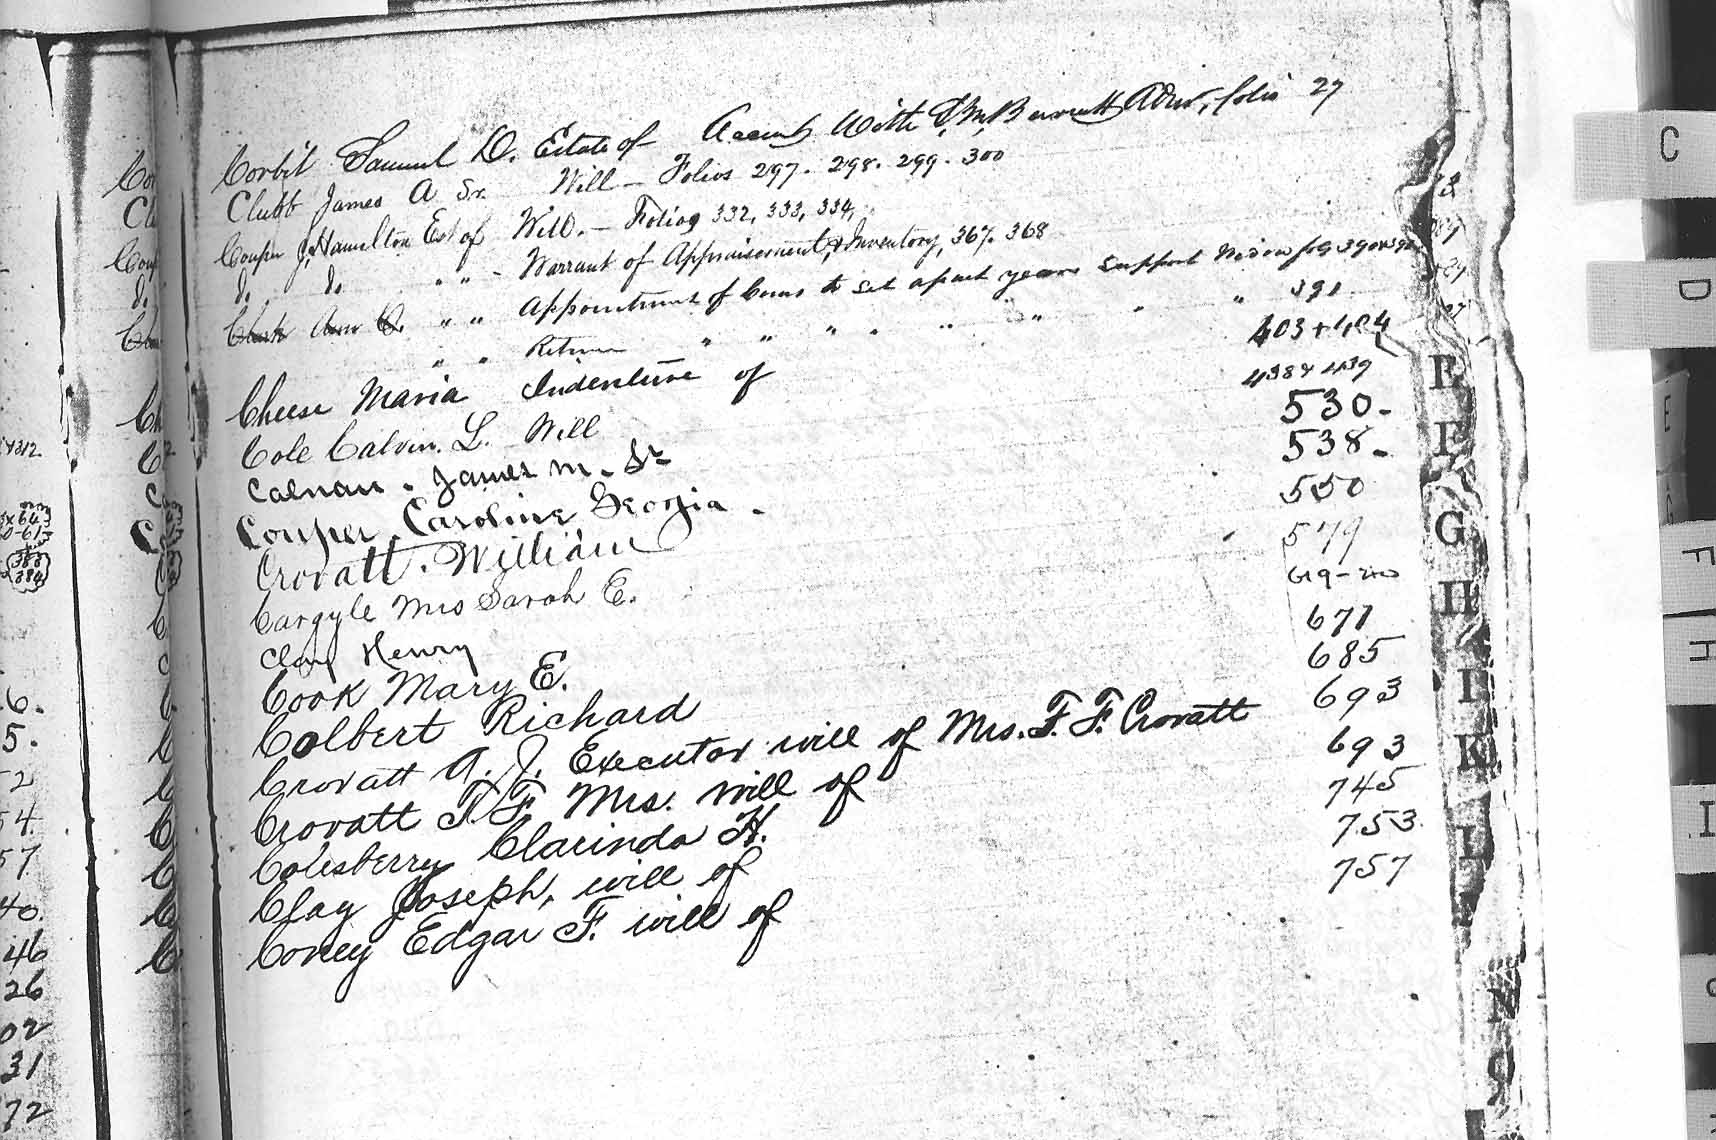 Corbit Samuel D. Estate of Accent With Adm, folio 27
Clubb James A Sr. Will — Folios 297. 298. 299. 300
Couper J. Hamilton Est of Will. — Folios 332, 333, 334,
d. d. " " - Warrant of Appraisement, & Inventory, 367. 368
Clark Ann " " Appointment of Coms to set apart years support
" " Return " " " " " " " " 391
403 + 404
Cheese Maria Indenture of 438 & 439
Cole Calvin. L. Will 530-
Calnan. James M. Sr 538-
Couper Caroline Georgia. 550
Crovatt. William 579
Cargyle Mrs Sarah E. 619-20
Clay Henry 671
Cook Mary E. 685
Colbert Richard 693
Crovatt A. J. Executor will of Mrs. F. F. Crovatt 693
Crovatt F. F. Mrs. will of 745
Colesberry Clarinda H. 753
Clay Joseph, will of 757
Coney Edgar F. will of
C
D
E
F
H
I
P
F
G
H
I
K
L
N
O
x312
6.
5.
2
54.
57.
40.
46
26
02
31
72